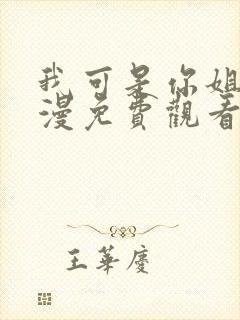 我可是你姐
漫免費觀看
王華慶